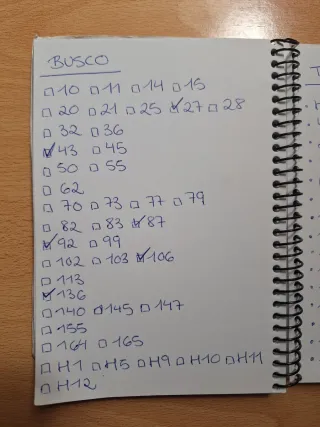 BUSCO
☐ 10 ☐ 11 ☐ 14 ☐ 15
☐ 20 ☐ 21 ☐ 25 ☑ 27 ☐ 28
☐ 32 ☐ 36
☑ 43 ☐ 45
☐ 50 ☐ 55
☐ 62
☐ 70 ☐ 73 ☐ 77 ☐ 79
☐ 82 ☐ 83 ☑ 87
☑ 92 ☐ 99
☐ 102 ☐ 103 ☑ 106
☐ 113
☑ 136
☐ 140 ☐ 145 ☐ 147
☐ 155
☐ 164 ☐ 165
☐ H1 ☐ H5 ☐ H9 ☐ H10 ☐ H11
☐ H12